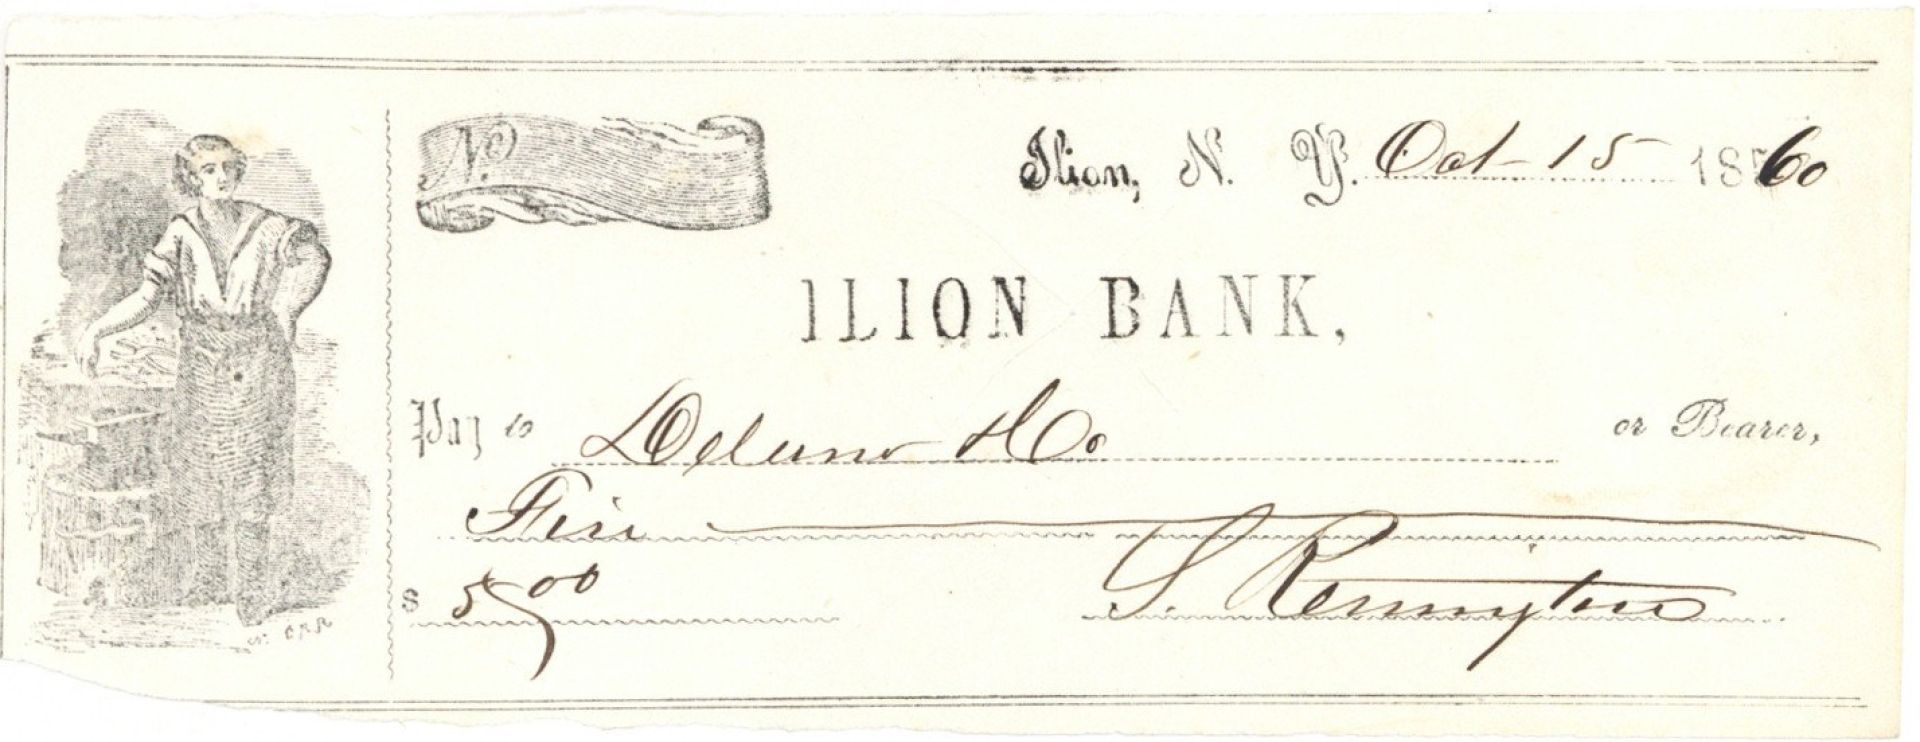 No.
Ilion, N. Y. Oct 15 1860
ILION BANK,
Pay to Delano & Co or Bearer,
Five
$ 5 00
S Remington
N. ORR